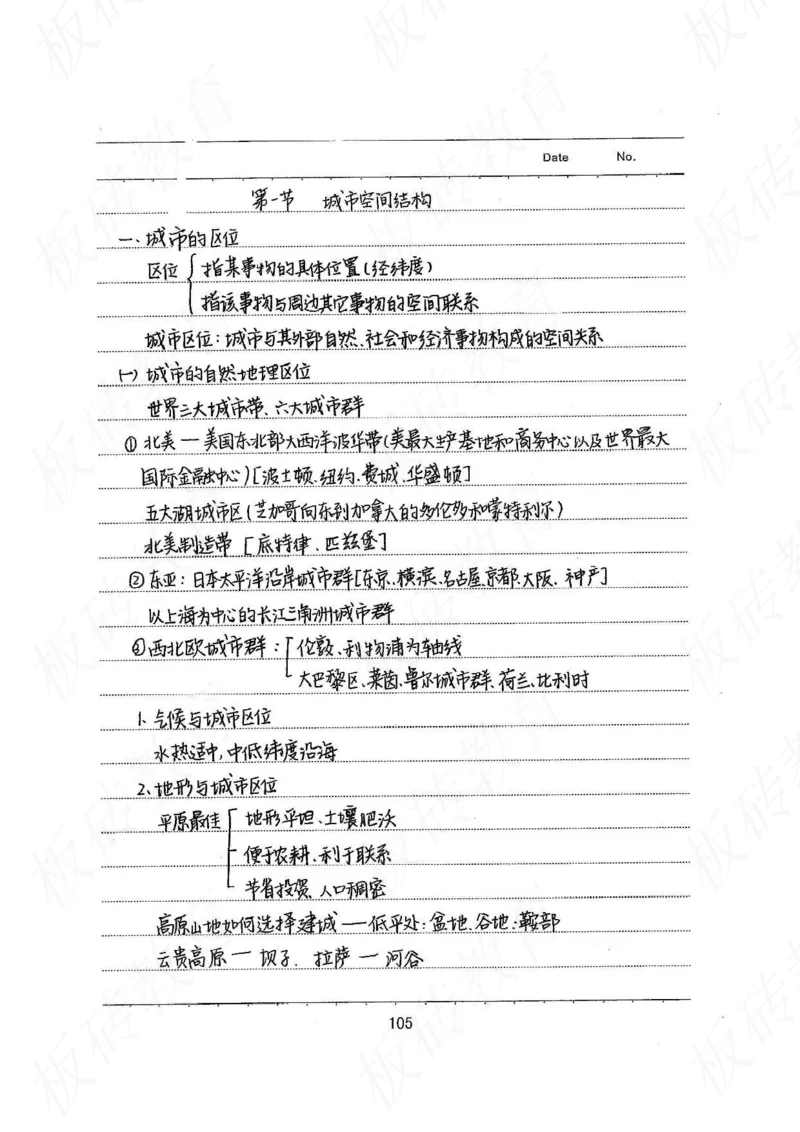 Date No.
第一节 城市空间结构
一、城市的区位
区位 指某事物的具体位置(经纬度)
指该事物与周边其它事物的空间联系
城市区位:城市与其外部自然、社会和经济事物构成的空间关系
(一)城市的自然地理区位
世界三大城市带、六大城市群
①北美—美国东北部大西洋波华带(美最大生产基地和商务中心以及世界最大
国际金融中心)[波士顿、纽约、费城、华盛顿]
五大湖城市区(芝加哥向东到加拿大的多伦多和蒙特利尔)
北美制造带 [底特律、匹兹堡]
②东亚:日本太平洋沿岸城市群[东京、横滨、名古屋、京都、大阪、神户]
以上海为中心的长江三角洲城市群
③西北欧城市群:伦敦、利物浦为轴线
大巴黎区、莱茵、鲁尔城市群、荷兰、比利时
1、气候与城市区位
水热适中,中低纬度沿海
2、地形与城市区位
平原最佳 地形平坦、土壤肥沃
便于农耕、利于联系
节省投资、人口稠密
高原山地如何选择建城——低平处:盆地、谷地:鞍部
云贵高原—坝子、拉萨—河谷
105
板砖教育